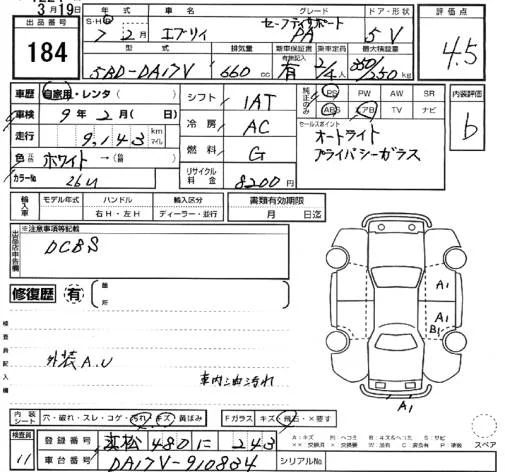 3月19日
出品番号
184
年式
S・H・R
7年2月
車名
エブリィ
グレード
セーフティサポート
PA
ドア・形状
5V
評価点
4.5
型式
5BD-DA17V
排気量
660cc
新車保証書
有無記入
有
乗車定員
2/4人
最大積載量
350/250kg
車歴 自家用・レンタ( )
車検 9年2月( 日)
走行 9,143 km マイル
色 元色 ホワイト→(替)
カラーNo 26U
シフト 1AT
冷房 AC
燃料 G
リサイクル料金 8200円
純正のみ
PS PW AW SR
ABS エアB TV ナビ
セールスポイント
オートライト
プライバシーガラス
内装評価
b
輸入車
モデル年式
ハンドル
右H・左H
輸入区分
ディーラー・並行
書類有効期限
月 日迄
出品店申告欄
※注意事項等記載
DCBS
修復歴 有 箇所
検査員記入欄
外装A.U
車内油汚れ
A1
A1
B1
A1
内装シート 穴・破れ・スレ・コゲ・汚れ・キズ・黄ばみ
Fガラス キズ・飛石・×要す
検査員
11
登録番号 浜松 480 に 243
車台番号 DA17V-910804
シリアルNo.
A:キズ H:ヘコミ B:キズ&ヘコミ S:サビ
スペア